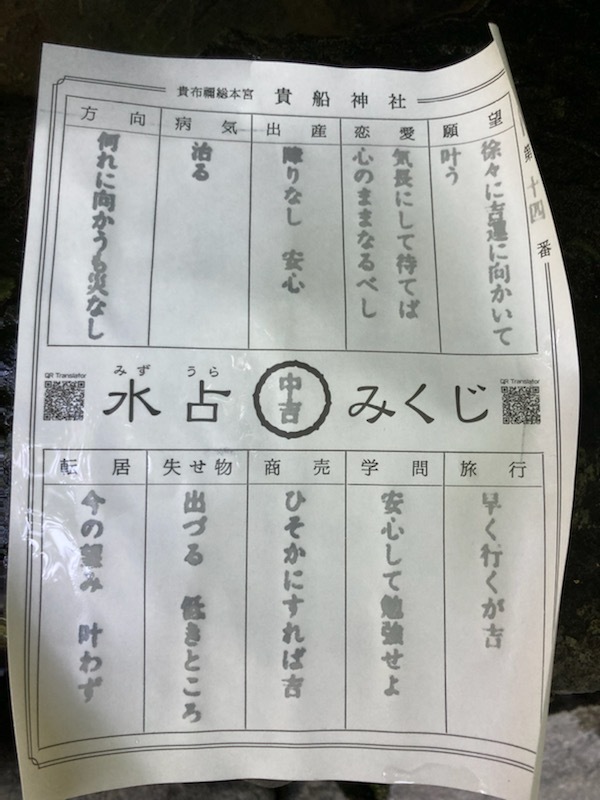 貴布禰総本宮 貴船神社
第十四番
願望
徐々に吉運に向かいて
叶う
恋愛
気長にして待てば
心のままなるべし
出産
障りなし 安心
病気
治る
方向
何れに向かうも災なし
QR Translator
みず うら
水占
中吉
みくじ
QR Translator
旅行
早く行くが吉
学問
安心して勉強せよ
商売
ひそかにすれば吉
失せ物
出づる 低きところ
転居
今の望み 叶わず